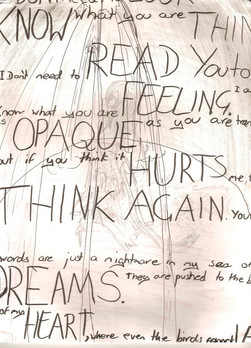 KNOW What you are THIN
READ You to
I Dont need to
FEELING. I a
know what you are
OPAQUE as you are
but if you think it HURTS me,
THINK AGAIN. You
words are just a nightmare in my sea of
DREAMS. They are pushed to the b
of my HEART, where even the birds